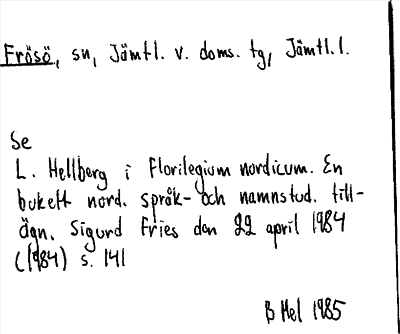 Frösö, sn, Jämtl. v. doms. tg, Jämtl. l.
Se
L. Hellberg i Florilegium nordicum. En
bukett nord. språk- och namnstud. till-
ägn. Sigurd Fries den 22 april 1984
(1984) s. 141
B Hel 1985